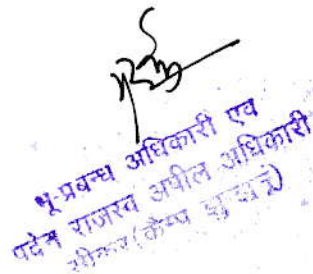 भू-प्रबन्ध अधिकारी एव
पदेन राजस्व अपील अधिकारी
सीकर (कैम्प झुन्झुनू)